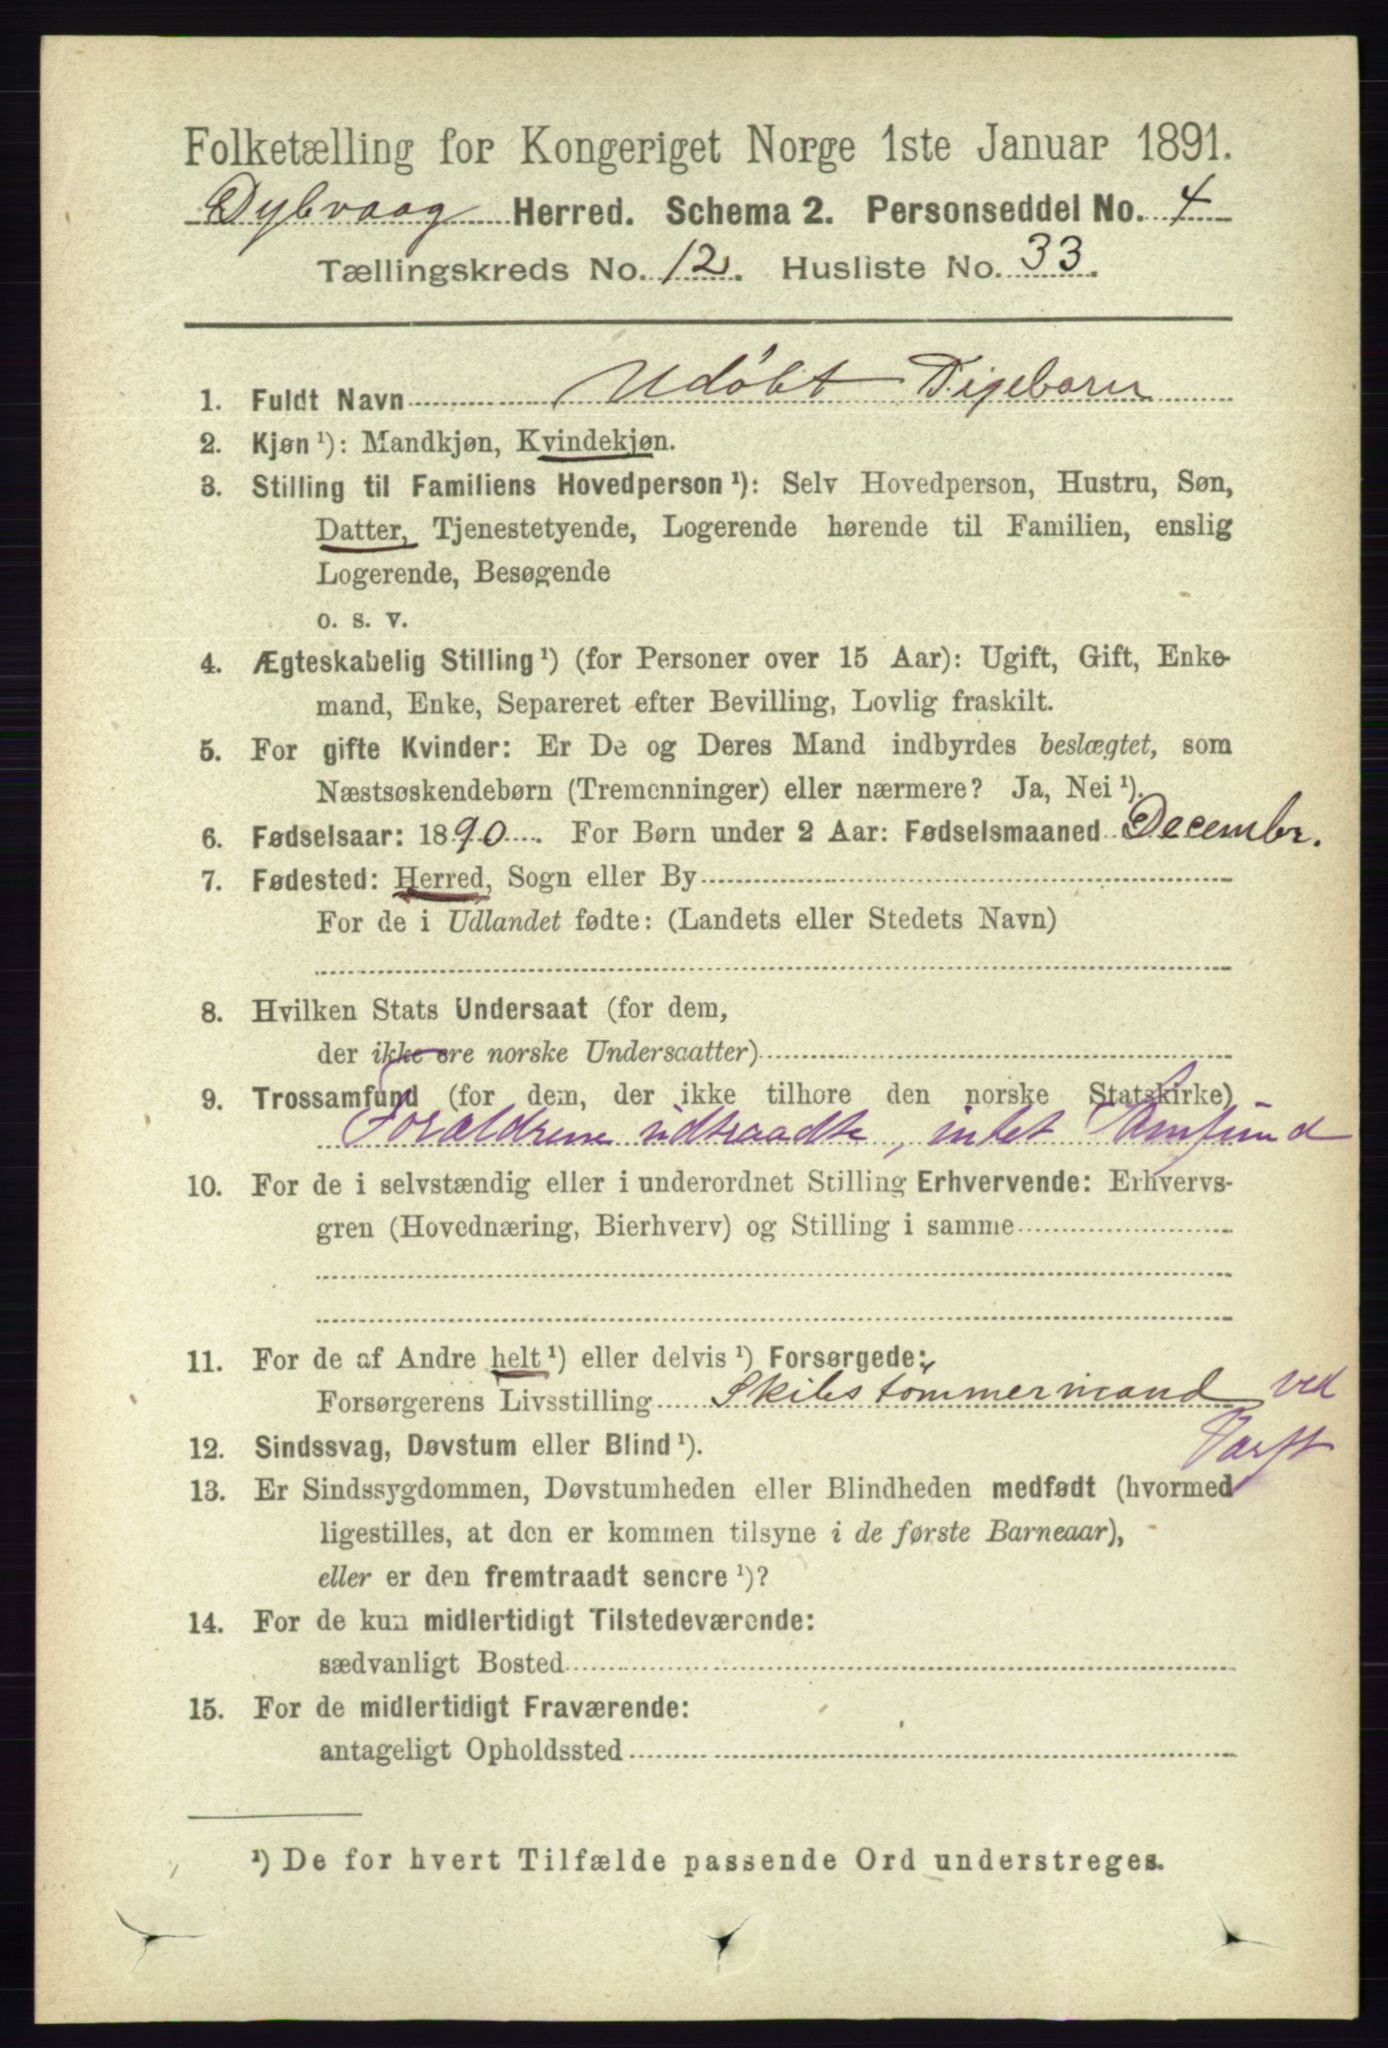 Folketælling for Kongeriget Norge 1ste Januar 1891.
Dybvaag Herred. Schema 2. Personseddel No. 4
Tællingskreds No. 12. Husliste No. 33.
1. Fuldt Navn Udøbt Pigebarn
2. Kjøn ¹): Mandkjøn, Kvindekjøn.
3. Stilling til Familiens Hovedperson ¹): Selv Hovedperson, Hustru, Søn,
Datter, Tjenestetyende, Logerende hørende til Familien, enslig
Logerende, Besøgende
o. s. v.
4. Ægteskabelig Stilling ¹) (for Personer over 15 Aar): Ugift, Gift, Enke-
mand, Enke, Separeret efter Bevilling, Lovlig fraskilt.
5. For gifte Kvinder: Er De og Deres Mand indbyrdes beslægtet, som
Næstsøskendebørn (Tremenninger) eller nærmere? Ja, Nei ¹).
6. Fødselsaar: 1890. For Børn under 2 Aar: Fødselsmaaned Decembr.
7. Fødested: Herred, Sogn eller By
For de i Udlandet fødte: (Landets eller Stedets Navn)
8. Hvilken Stats Undersaat (for dem,
der ikke ere norske Undersaatter)
9. Trossamfund (for dem, der ikke tilhøre den norske Statskirke)
Forældrene udtraadte, intet Samfund
10. For de i selvstændig eller i underordnet Stilling Erhvervende: Erhvervs-
gren (Hovednæring, Bierhverv) og Stilling i samme
11. For de af Andre helt ¹) eller delvis ¹) Forsørgede:
Forsørgerens Livsstilling Skibstømmermand ved
Værft
12. Sindssvag, Døvstum eller Blind ¹).
13. Er Sindssygdommen, Døvstumheden eller Blindheden medfødt (hvormed
ligestilles, at den er kommen tilsyne i de første Barneaar),
eller er den fremtraadt senere ¹)?
14. For de kun midlertidigt Tilstedeværende:
sædvanligt Bosted
15. For de midlertidigt Fraværende:
antageligt Opholdssted
¹) De for hvert Tilfælde passende Ord understreges.